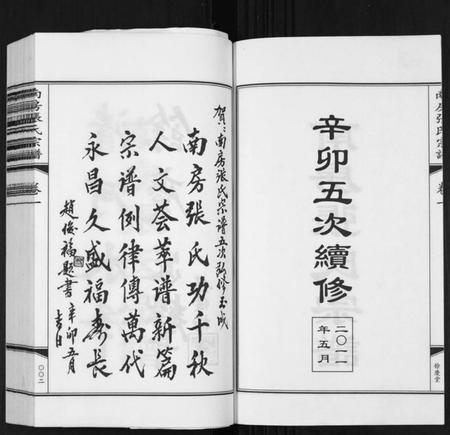 辛卯五次續修
二〇一一
年五月
南房張氏宗譜
卷一
餘慶堂
賀：南房張氏宗譜五次續修玉成
南房張氏功千秋
人文荟萃谱新篇
宗谱例律傳萬代
永昌久盛福壽長
趙俊福题書
辛卯五月
吉日
南房張氏宗譜
卷一
〇〇二